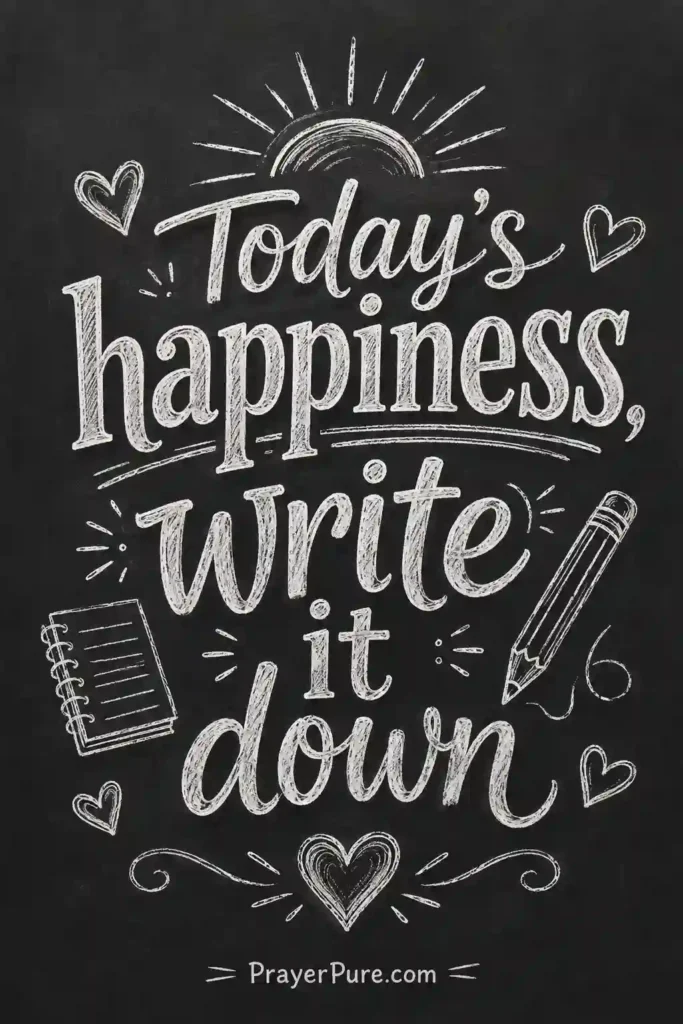 Today's
happiness,
write
it
down
PrayerPure.com